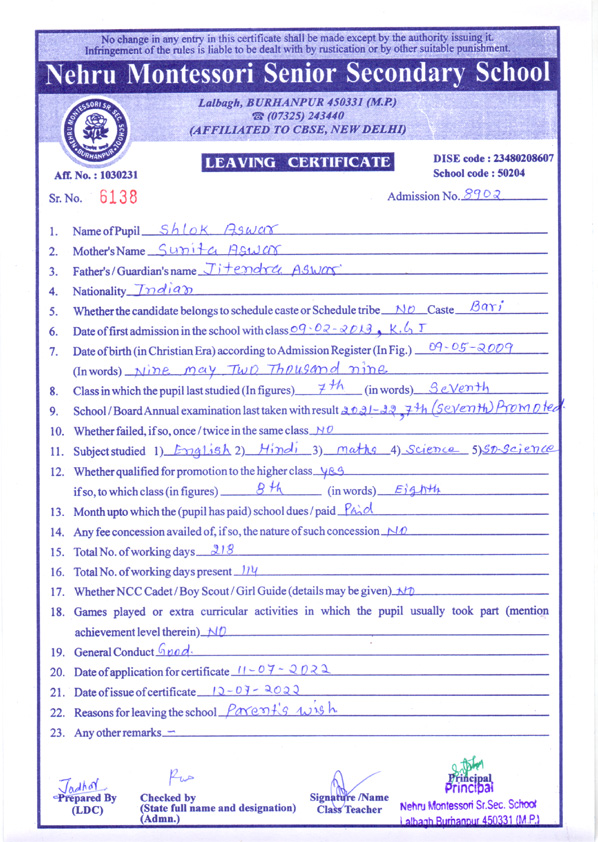 No change in any entry in this certificate shall be made except by the authority issuing it.
Infringement of the rules is liable to be dealt with by rustication or by other suitable punishment.
Nehru Montessori Senior Secondary School
Lalbagh, BURHANPUR 450331 (M.P.)
☎ (07325) 243440
(AFFILIATED TO CBSE, NEW DELHI)
NEHRU MONTESSORI SR. SEC. SCHOOL
BURHANPUR
LEAVING CERTIFICATE
DISE code : 23480208607
School code : 50204
Aff. No. : 1030231
Sr. No. 6138
Admission No. 8902
1. Name of Pupil Shlok Aswar
2. Mother's Name Sunita Aswar
3. Father's / Guardian's name Jitendra Aswar
4. Nationality Indian
5. Whether the candidate belongs to schedule caste or Schedule tribe NO Caste Bari
6. Date of first admission in the school with class 09-02-2013, K.G I
7. Date of birth (in Christian Era) according to Admission Register (In Fig.) 09-05-2009
(In words) Nine may Two Thousand nine
8. Class in which the pupil last studied (In figures) 7th (in words) Seventh
9. School / Board Annual examination last taken with result 2021-22, 7th (Seventh) Promoted.
10. Whether failed, if so, once / twice in the same class NO
11. Subject studied 1) English 2) Hindi 3) maths 4) Science 5) SO-Science
12. Whether qualified for promotion to the higher class yes
if so, to which class (in figures) 8th (in words) Eighth
13. Month upto which the (pupil has paid) school dues / paid Paid
14. Any fee concession availed of, if so, the nature of such concession NO
15. Total No. of working days 218
16. Total No. of working days present 114
17. Whether NCC Cadet / Boy Scout / Girl Guide (details may be given) NO
18. Games played or extra curricular activities in which the pupil usually took part (mention
achievement level therein) NO
19. General Conduct Good.
20. Date of application for certificate 11-07-2022
21. Date of issue of certificate 12-07-2022
22. Reasons for leaving the school Parent's wish
23. Any other remarks –
Jadhav
Prepared By
(LDC)
Checked by
(State full name and designation)
(Admn.)
Signature /Name
Class Teacher
Principal
Principal
Nehru Montessori Sr.Sec. School
Lalbagh Burhanpur 450331 (M.P.)